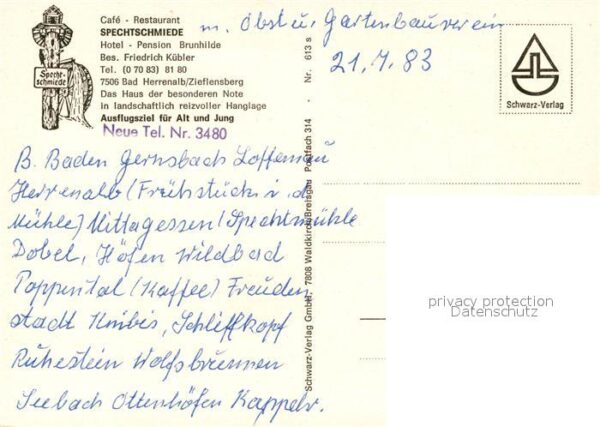 Café - Restaurant
SPECHTSCHMIEDE
Hotel - Pension Brunhilde
Bes. Friedrich Kübler
Tel. (0 70 83) 81 80
7506 Bad Herrenalb/Zieflensberg
Das Haus der besonderen Note
in landschaftlich reizvoller Hanglage
Ausflugsziel für Alt und Jung
Neue Tel. Nr. 3480
Specht-
schmiede
m. Obst u. Gartenbauverein
21.7.83
Schwarz-Verlag
B. Baden Gernsbach Loffenau
Herrenalb (Frühstück i. d.
Mühle) Mittagessen (Spechtmühle
Dobel, Höfen Wildbad
Poppental (Kaffee) Freuden
stadt Knibis, Schliffkopf
Ruhestein Wolfsbrunnen
Seebach Ottenhöfen Kappelr.
Schwarz-Verlag GmbH · 7808 Waldkirch/Breisgau · Postfach 314 · Nr. 613 s
privacy protection
Datenschutz